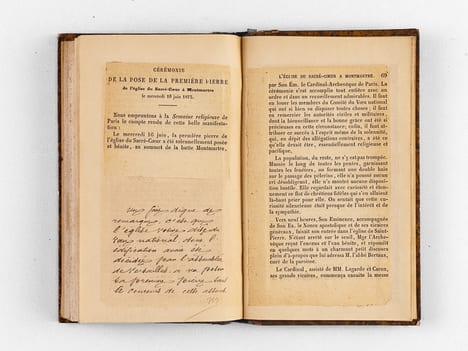 CÉRÉMONIE
DE LA POSE DE LA PREMIÈRE PIERRE
de l'église du Sacré-Cœur à Montmartre
le mercredi 16 juin 1875.
Nous empruntons à la Semaine religieuse de
Paris le compte rendu de cette belle manifesta-
tion :
Le mercredi 16 juin, la première pierre de
l'église du Sacré-Cœur a été solennellement posée
et bénite, au sommet de la butte Montmartre,
digne de
remarque, c'est que
l'église
national dont
édification
décidée par l'assemblée
de Versailles, a vu poser
sa première pierre
le concours de cette
L'ÉGLISE DU SACRÉ-CŒUR A MONTMARTRE. 69
par Son Ém. le Cardinal-Archevêque de Paris. La
cérémonie s'est accomplie tout entière avec un
ordre et dans un recueillement admirables. Il faut
en louer les membres du Comité du Vœu national
qui ont si bien su disposer toutes choses ; il faut
en remercier les autorités civiles et militaires,
dont la bienveillance et la bonne grâce ont été si
précieuses en cette circonstance ; enfin, il faut at-
tribuer ce succès à l'esprit même de la solennité,
qui, en dépit des allégations contraires, a été ce
qu'elle devait être, essentiellement religieuse et
pacifique.
La population, du reste, ne s'y est pas trompée.
Massée le long de toutes les pentes, garnissant
toutes les fenêtres, ou formant une double haie
sur le passage des pèlerins, elle n'a poussé aucun
cri désobligeant, elle n'a montré aucune disposi-
tion hostile. Elle regardait avec curiosité et étonne-
ment ce flot de chrétiens fidèles qui s'en allaient
là-haut prier pour elle. On sentait que cette cu-
riosité silencieuse était presque de l'intérêt et de
la sympathie.
Vers neuf heures, Son Éminence, accompagnée
de Son Ex. le Nonce apostolique et de ses vicaires
généraux, faisait son entrée dans l'église de Saint-
Pierre. S'étant arrêté sur le seuil, Mgr l'Arche-
vêque reçut l'encens et l'eau bénite, et répondit
en quelques mots à un charmant petit discours
plein d'à-propos que lui adressa M. l'abbé
curé de la paroisse.
Le Cardinal, assisté de MM. Lagarde et Caron,
ses grands vicaires, commença ensuite la messe